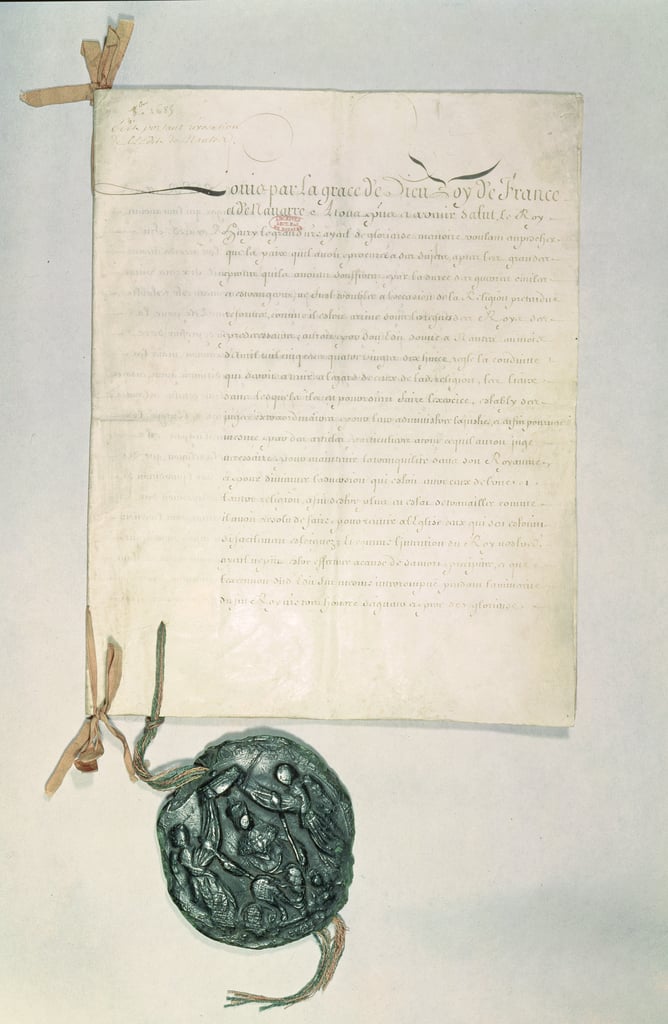 8bre 1685
Edit portant revocation
de l'Edit de Nantes
Louis par La grace de Dieu Roy de France
et de Navarre A tous presens et a venir salut. Le Roy
Henry le grand nre ayeul de glorieuse memoire voulant empescher
que la paix quil avoit procurée a ses sujets apres les grandes
pertes quils avoient souffertes par la durée des guerres civiles
et estrangeres, ne fust troublée a l'occasion de la Religion pretendue
reformée, comme il estoit arrivé sous les regnes des Roys ses
predecesseurs, auroit par son Edit donné a Nantes au mois
d'avril mil cinq cens quatre vingts dix huict, reglé la conduitte
qui devoit a l'egard de ceux de lad. religion, les lieux
dans lesquels ils en pourroient faire l'exercice, estably des
juges extraordinaires pour leur administrer la justice, et enfin pourveu
mesme par des articles particuliers a tout ce qu'il auroit jugé
necessaire pour maintenir la tranquilité dans son Royaume,
et pour diminuer l'aversion qui estoit entre ceux de l'une et
l'autre religion, afin d'estre plus en estat de travailler comme
il avoit resolu de faire pour reunir a l'Eglise ceux qui s'en estoient
si facilement esloignez; Et comme l'intention du Roy nostred.
ayeul ne put estre effectuée a cause de sa mort precipitée, et que
l'execution dud. Edit fut mesme interrompue pendant la minorité
du feu Roy nre tres honoré seigneur et pere de glorieuse